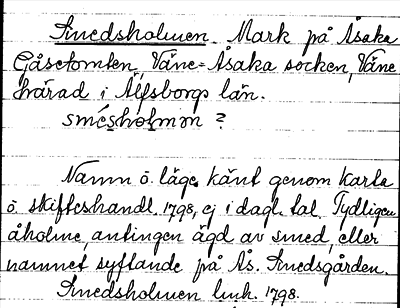 Smedsholmen. Mark på Åsaka
Gåsetomten, Väne-Åsaka socken, Väne
härad i Älfsborgs län.
smésholmən ?
Namn o. läge känt genom karta
o. skifteshandl. 1798, ej i dagl. tal. Tydligen
åholme, antingen ägd av smed, eller
namnet syftande på Ås. Smedsgården.
Smedsholmen link. 1798.